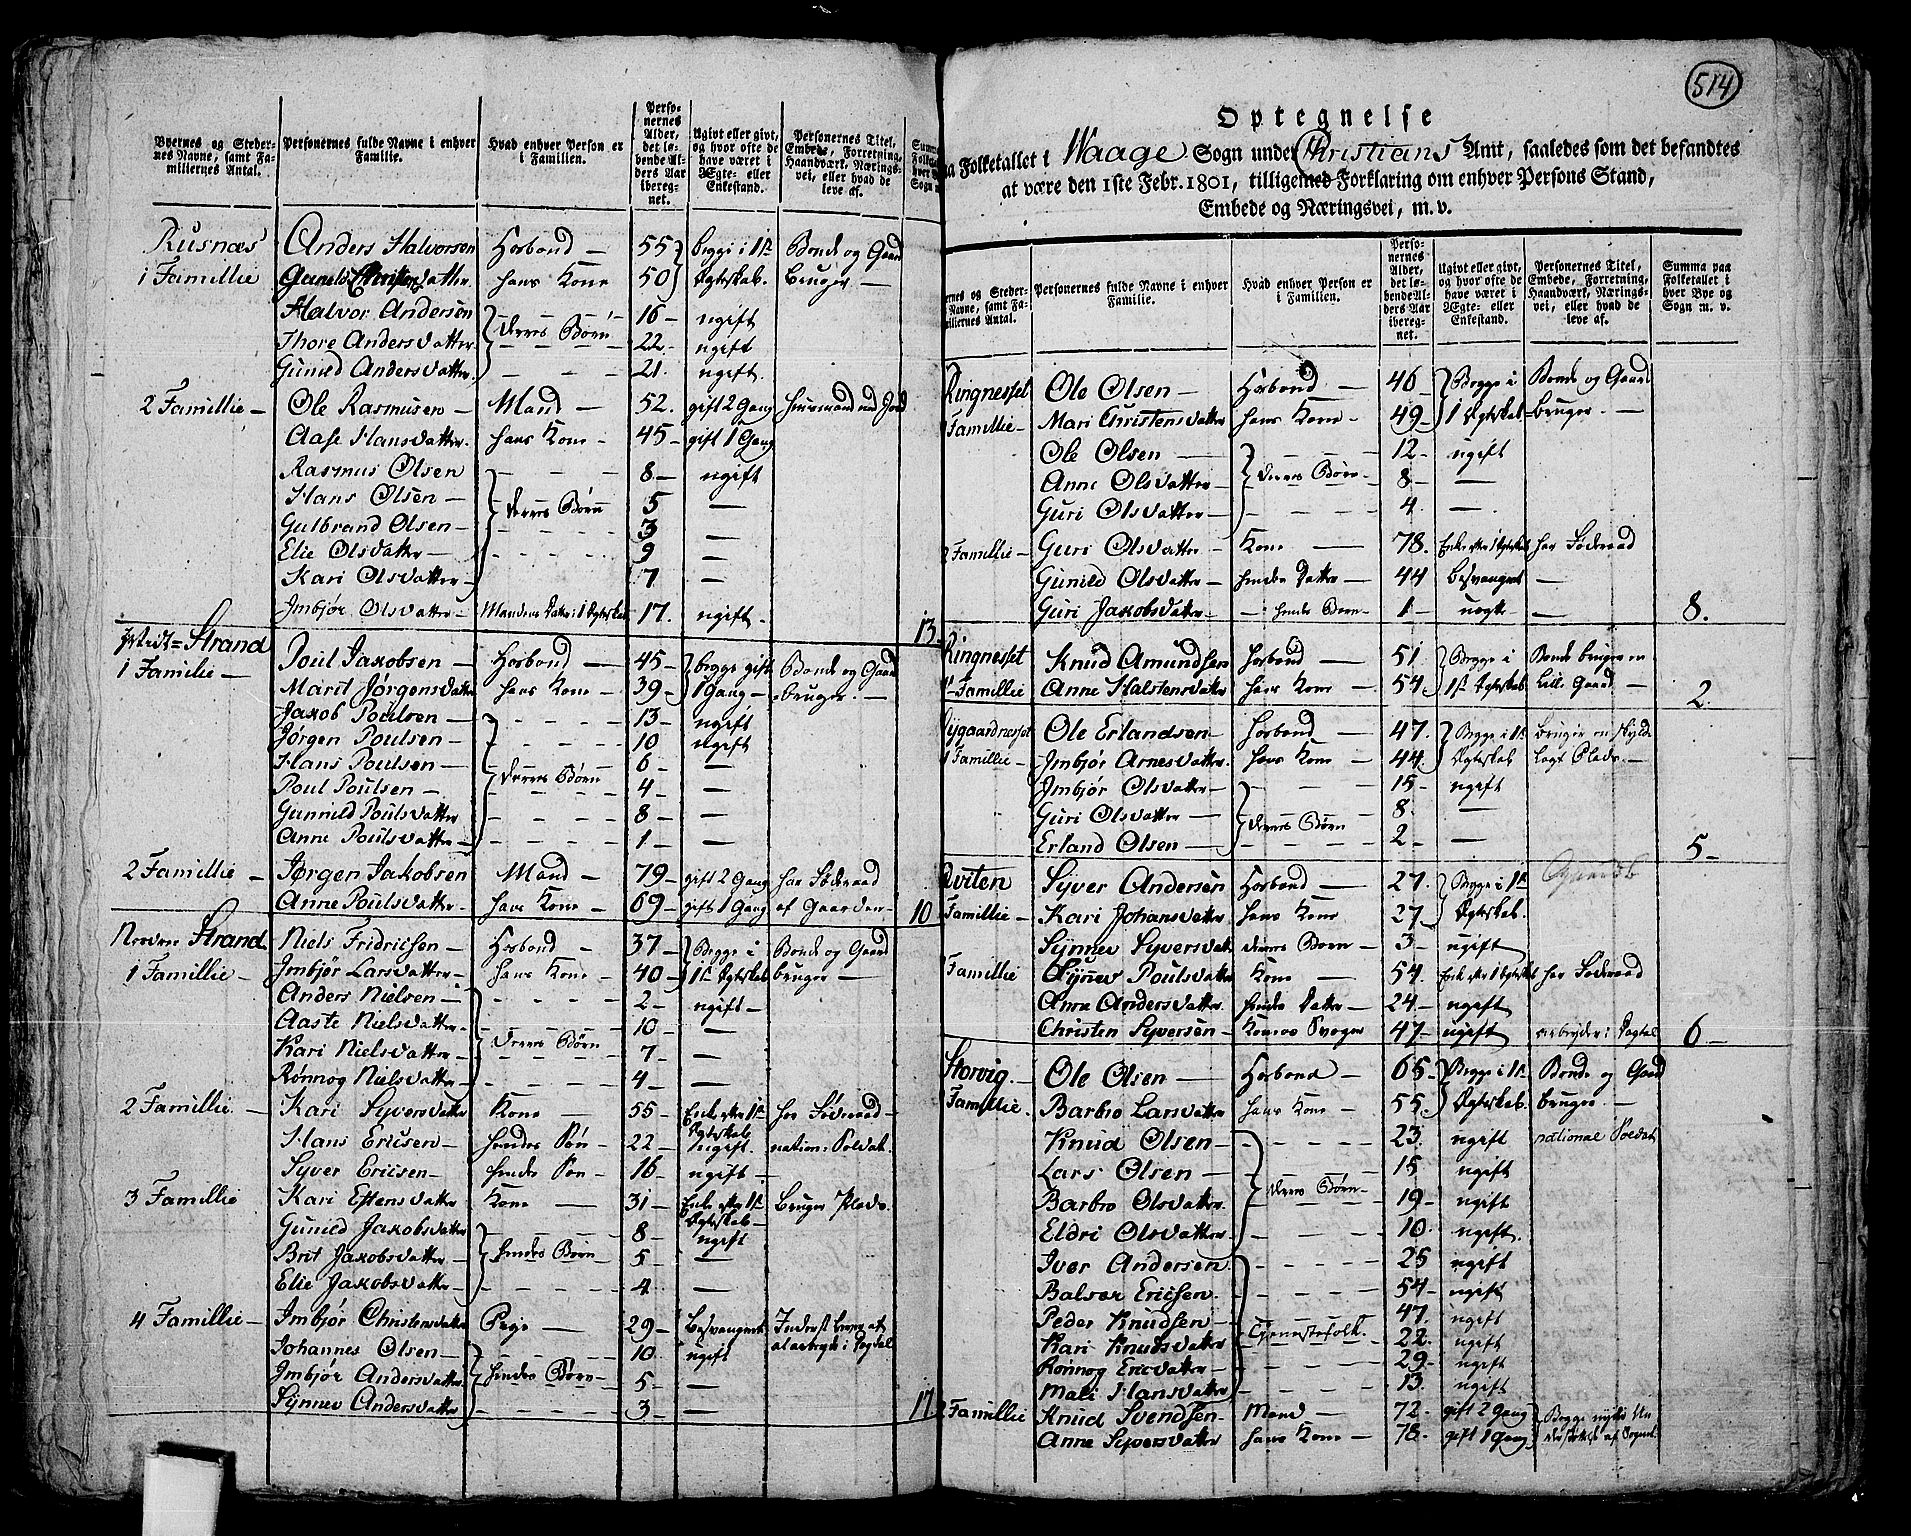 Byernes og Steder-
nes Navne, samt Fa-
miliernes Antal.
Personernes fulde Navne i enhver
Familie.
Hvad enhver Person er
i Familien.
Perso-
nernes
Alder,
det lø-
bende Al-
ders Aar
ibereg-
net.
Ugivt eller givt,
og hvor ofte de
have været i
Ægte- eller
Enkestand.
Personernes Titel,
Embede, Forretning,
Haandværk, Nærings-
vei, eller hvad de
leve af.
Rusnæs Anders Halvorsen Hosbond 55 begge i 1ste Bonde og Gaard
1 Famillie Hans Kone 50 Ægteskab. bruger
Halvor Andersen 16 ugift
Thore Andersdatter deres Børn 22 ugift
Gunild Andersdatter 21 ugift
2 Famillie Ole Rasmusen Mand 52 gift 2 Gang Huusmand med Jord
Aase Hansdatter hans Kone 45 gift 1 Gang
Rasmus Olsen 8 ugift
Hans Olsen deres Børn 5 —
Gulbrand Olsen 3 —
Elie Olsdatter 9 —
Kari Olsdatter 7 —
Jmbjør Olsdatter Mandens Datter i 1 Ægteskab 17 ugift 13
Strand Poul Jakobsen Hosbond 45 begge gift Bonde og Gaard
1 Familie Marit Jørgensdatter hans Kone 39 1 Gang bruger
Jakob Poulsen 13 ugift
Jørgen Poulsen 10 ugift
Hans Poulsen 6 —
Poul Poulsen deres Børn 4 —
Gunnild Poulsdatter 8 —
Anne Poulsdatter 1 —
2 Famillie Jørgen Jakobsen Mand 79 gift 2 Gang har Føderaad
Anne Poulsdatter hans Kone 69 gift 1 Gang af Gaarden 10
Nordre Strand Niels Fridricsen Hosbond 37 Begge i Bonde og Gaard
1 Famillie Jmbjør Larsdatter hans Kone 40 1ste Ægteskab bruger
Anders Nielsen 2 ugift
Aaste Nielsdatter 10 —
Kari Nielsdatter deres Børn 7 —
Rønnog Nielsdatter 4 —
2 Famillie Kari Syversdatter Kone 55 Enke efter 1ste Ægteskab har Føderaad
Hans Ericsen hendes Søn 22 ugift national Soldat
Syver Ericsen hendes Søn 16 ugift
3 Famillie Kari Estensdatter Kone 31 Enke efter 1ste Ægteskab Bruger Plads
Gunild Jakobsdatter 8 ugift
Brit Jakobsdatter hendes Børn 5 —
Elie Jakobsdatter 4 —
4 Famillie Jmbjør Christensdatter Pige 29 Besvangret Inderst lever af
Johannes Olsen 10 ugift at arbeyde i Dagtal
Jmbjør Andersdatter hendes Børn 5 —
Synnev Andersdatter 3 — 17
514
Optegnelse
Folketallet i Waage Sogn under Christians Amt, saaledes som det befandtes
at være den 1ste Febr. 1801, tilligemed Forklaring om enhver Persons Stand,
Embede og Næringsvei, m. v.
Personernes fulde Navne i enhver
Familie.
Hvad enhver Person er
i Familien.
Perso-
nernes
Alder,
det lø-
bende Al-
ders Aar
ibereg-
net.
Ugivt eller givt,
og hvor ofte de
have været i
Ægte- eller
Enkestand.
Personernes Titel,
Embede, Forretning,
Haandværk, Nærings-
vei, eller hvad de
leve af.
Summa paa
Folketallet i
hver Bye og
Sogn m. v.
Ringnesset Ole Olsen Hosbond 46 Begge i Bonde og Gaard
Famillie Mari Christensdatter hans Kone 49 1 Ægteskab bruger
Ole Olsen 12 ugift
Anne Olsdatter deres Børn 8 —
Guri Olsdatter 4 —
2 Famillie Guri Olsdatter Kone 78 Enke efter 1 Ægteskab har Føderaad
Gunild Olsdatter hendes Datter 44 besvangret —
Guri Jakobsdatter hendes Børn 1 uægte — 8.
Ringnesset Knud Amundsen Hosbond 51 Begge i Bonde bruger en
1 Famillie Anne Halstensdatter hans Kone 54 1ste Ægteskab lille Gaard 2
Nygaardnesset Ole Erlandsen Hosbond 47 Begge i 1ste bruger en skyld
1 Famillie Jmbjør Arnesdatter hans Kone 44 Ægteskab lagt Plads
Jmbjør Olsdatter 15 ugift
Guri Olsdatter deres Børn 8 —
Erland Olsen 2 — 5
Qviten Syver Andersen Hosbond 27 Begge i 1ste
Famillie Kari Johansdatter hans Kone 27 Ægteskab
Synnev Syversdatter deres Børn 3 ugift
Famillie Synnev Poulsdatter Kone 54 Enke efter 1 Ægteskab har Føderaad
Anne Andersdatter hendes Datter 24 ugift
Christen Syversen Konens Svoger 47 ugift arbeyder i Dagtal 6
Storvig Ole Olsen Hosbond 65 Begge i 1ste Bonde og Gaard
Famillie Barbro Larsdatter hans Kone 55 Ægteskab bruger
Knud Olsen 23 ugift national Soldat
Lars Olsen 15 ugift
Barbro Olsdatter deres Børn 19 ugift
Eldri Olsdatter 10 ugift
Iver Andersen 25 ugift
Balser Ericsen 54 ugift
Peder Knudsen 47 ugift
Kari Knutsdatter Tjenestefolk 22 ugift
Rønnog Ericdatter 29 ugift
Mali Hansdatter 13 ugift
2 Famillie Knud Svendsen Mand 72 gift 2 Gang Begge nyder Un
Anne Syversdatter hans Kone 78 gift 1 Gang derstøttelse af Sognet